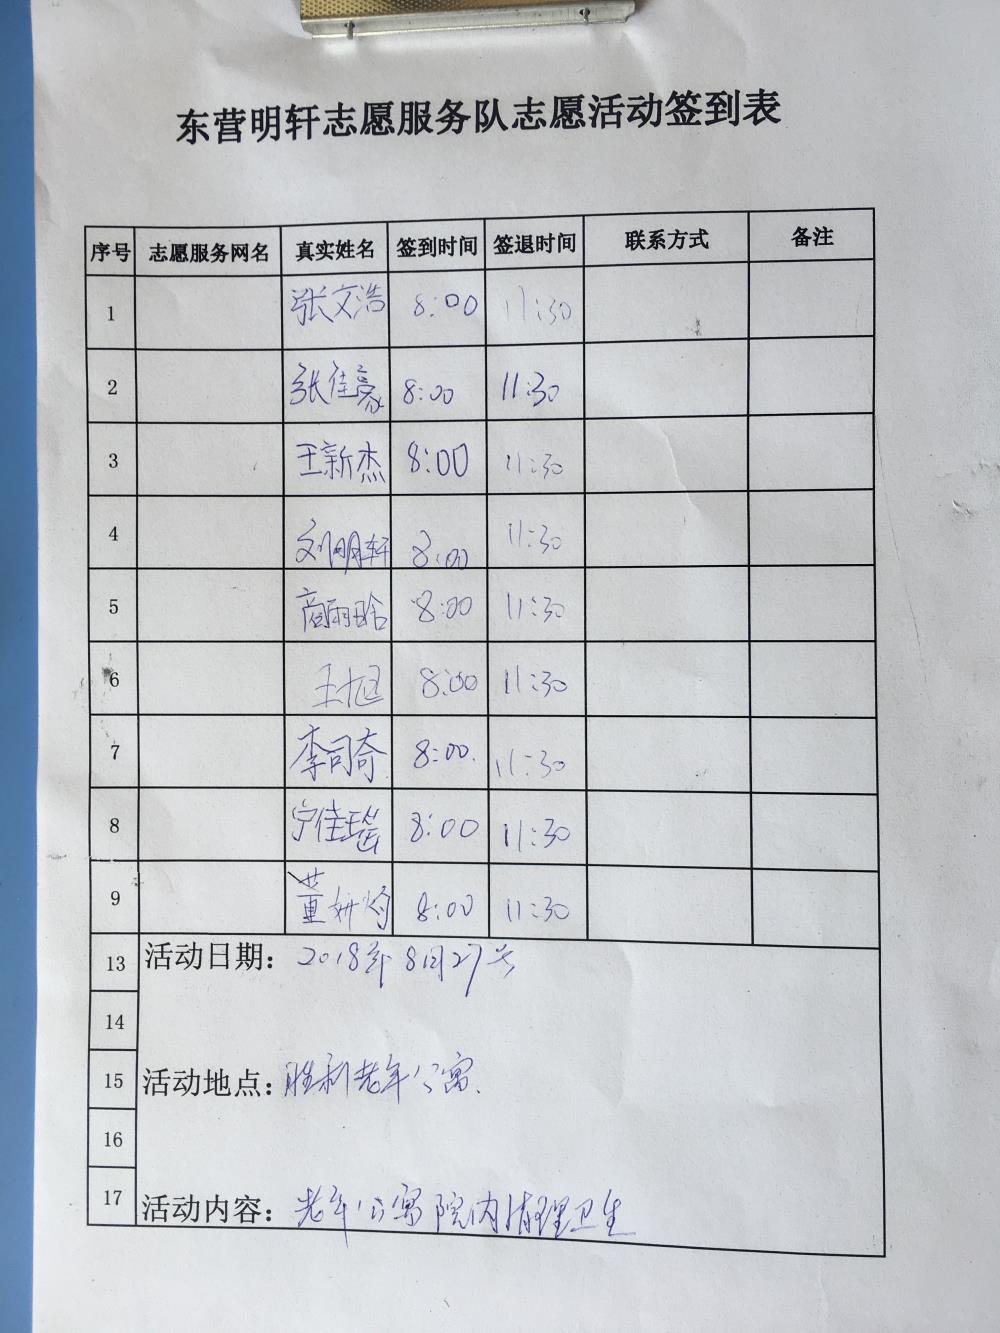 东营明轩志愿服务队志愿活动签到表
序号 志愿服务网名 真实姓名 签到时间 签退时间 联系方式 备注
1 张文浩 8:00 11:30
2 张佳豪 8:00 11:30
3 王新杰 8:00 11:30
4 刘明轩 8:00 11:30
5 商雨晗 8:00 11:30
6 王旭 8:00 11:30
7 李司奇 8:00. 11:30
8 宁佳瑶 8:00 11:30
9 董妍 8:00 11:30
13 活动日期：2018年8月27号
14
15 活动地点：胜利老年公寓.
16
17 活动内容：老年公寓院内清理卫生